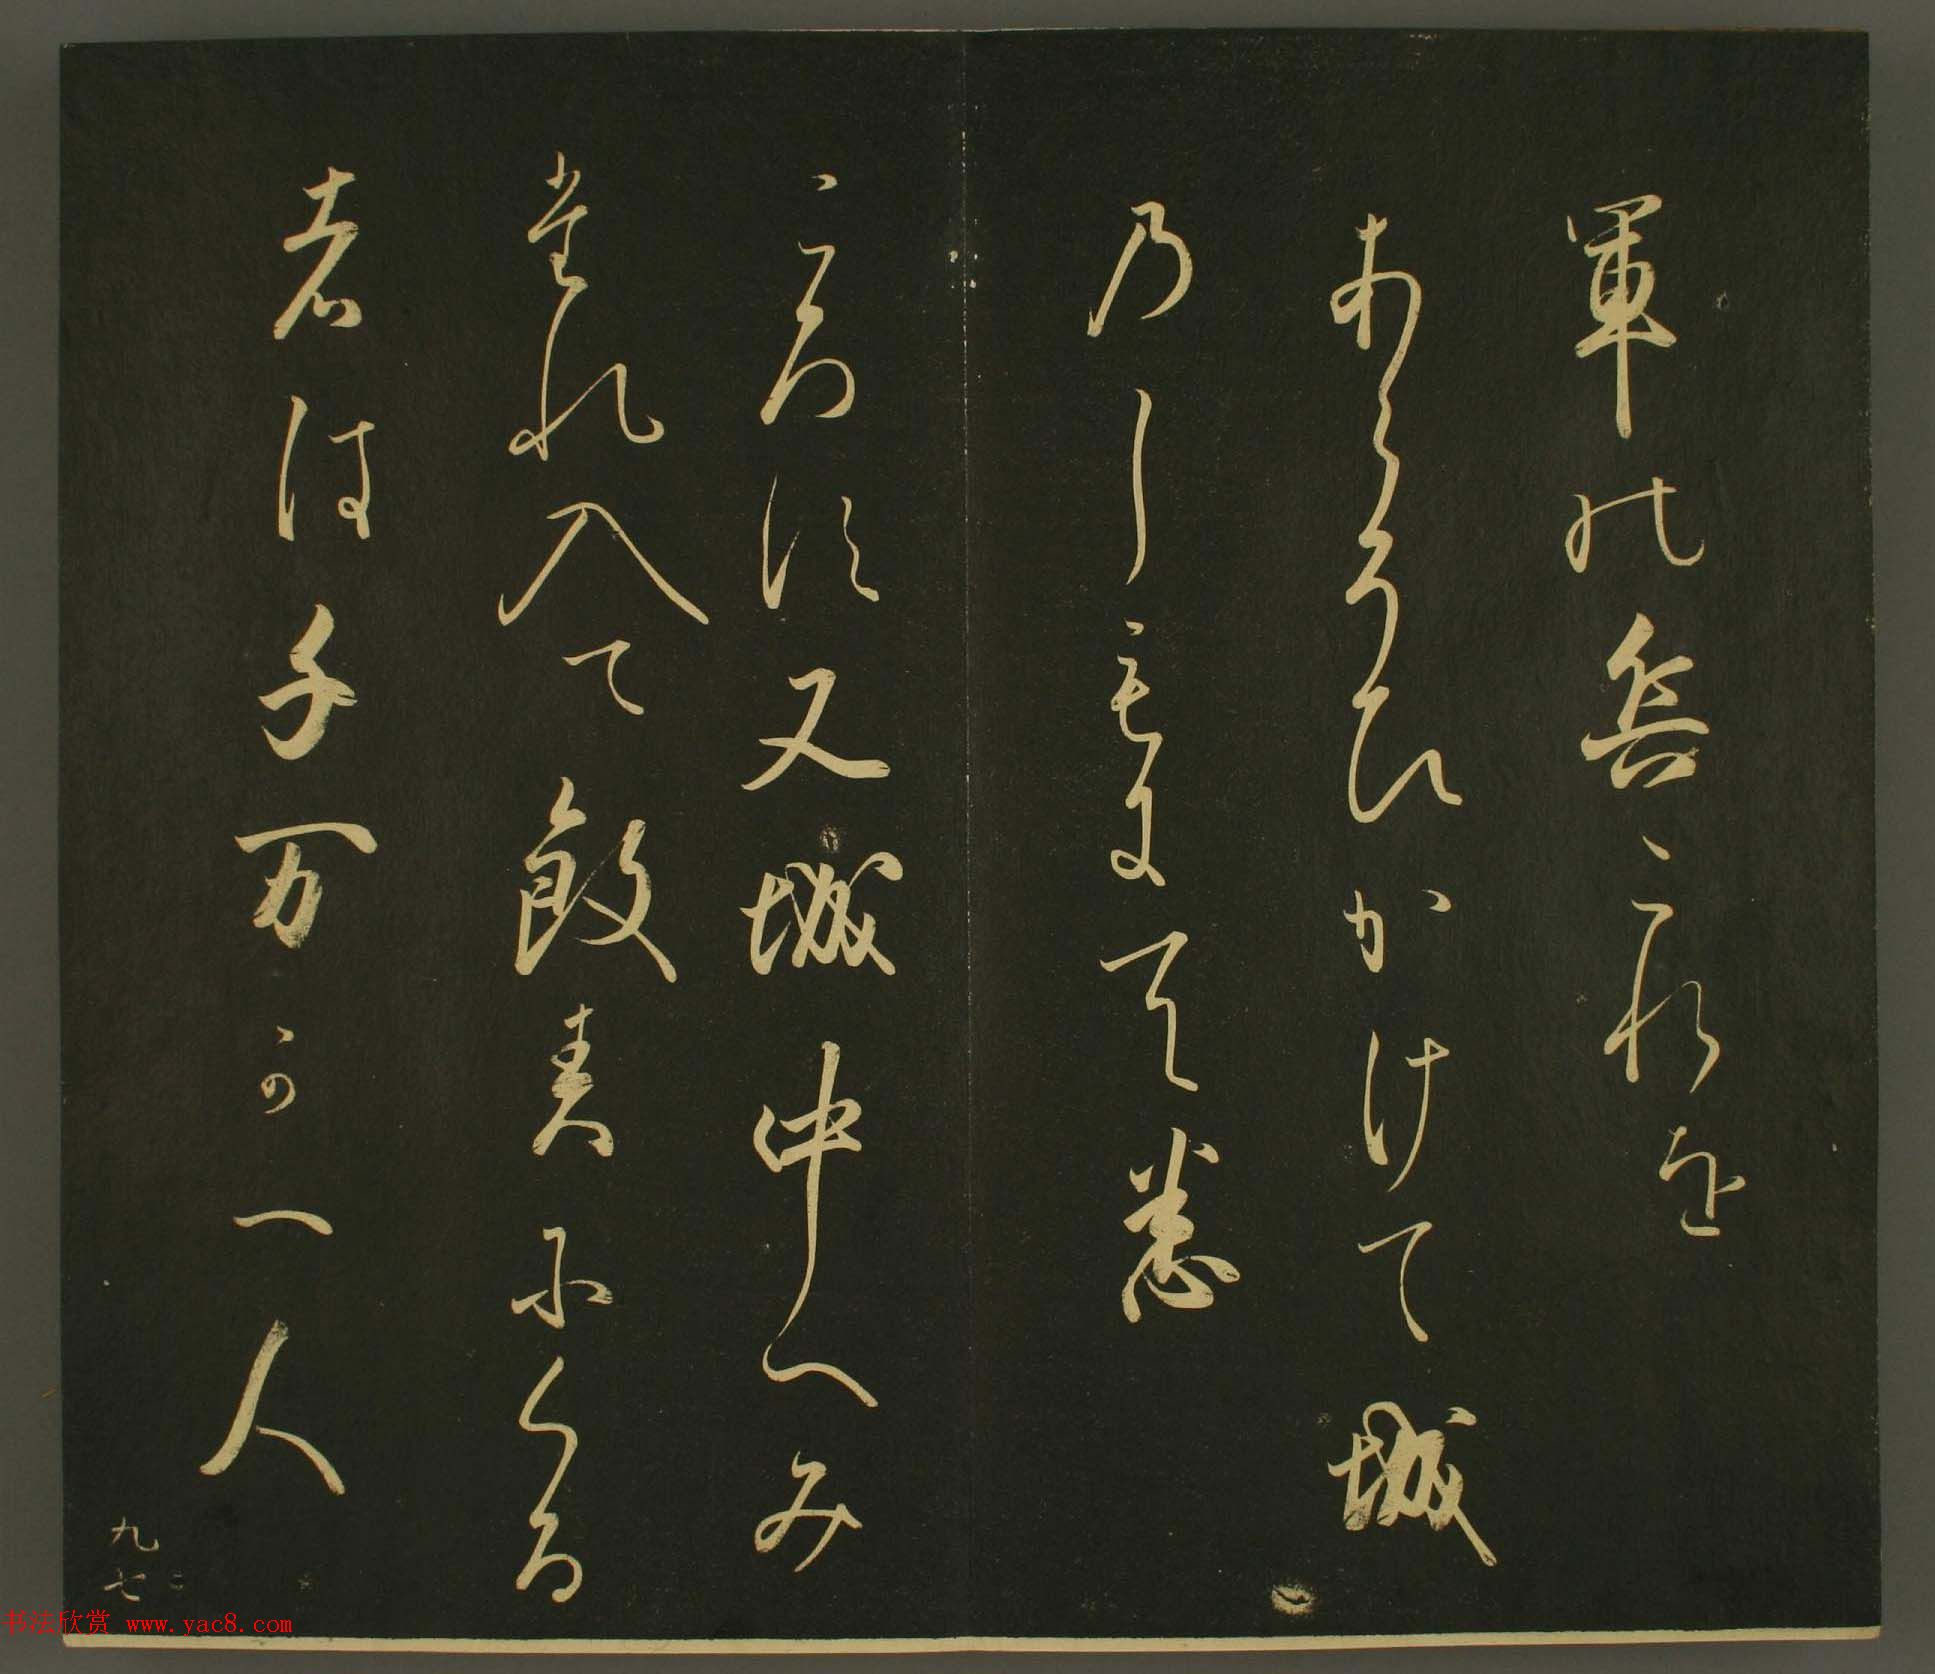 軍の兵これを
あらそひかけて城
のし　て悉
ころす又城中へみ
たれ入て　　にくる
者は千万か一人
九七
书法欣赏 www.yac8.com